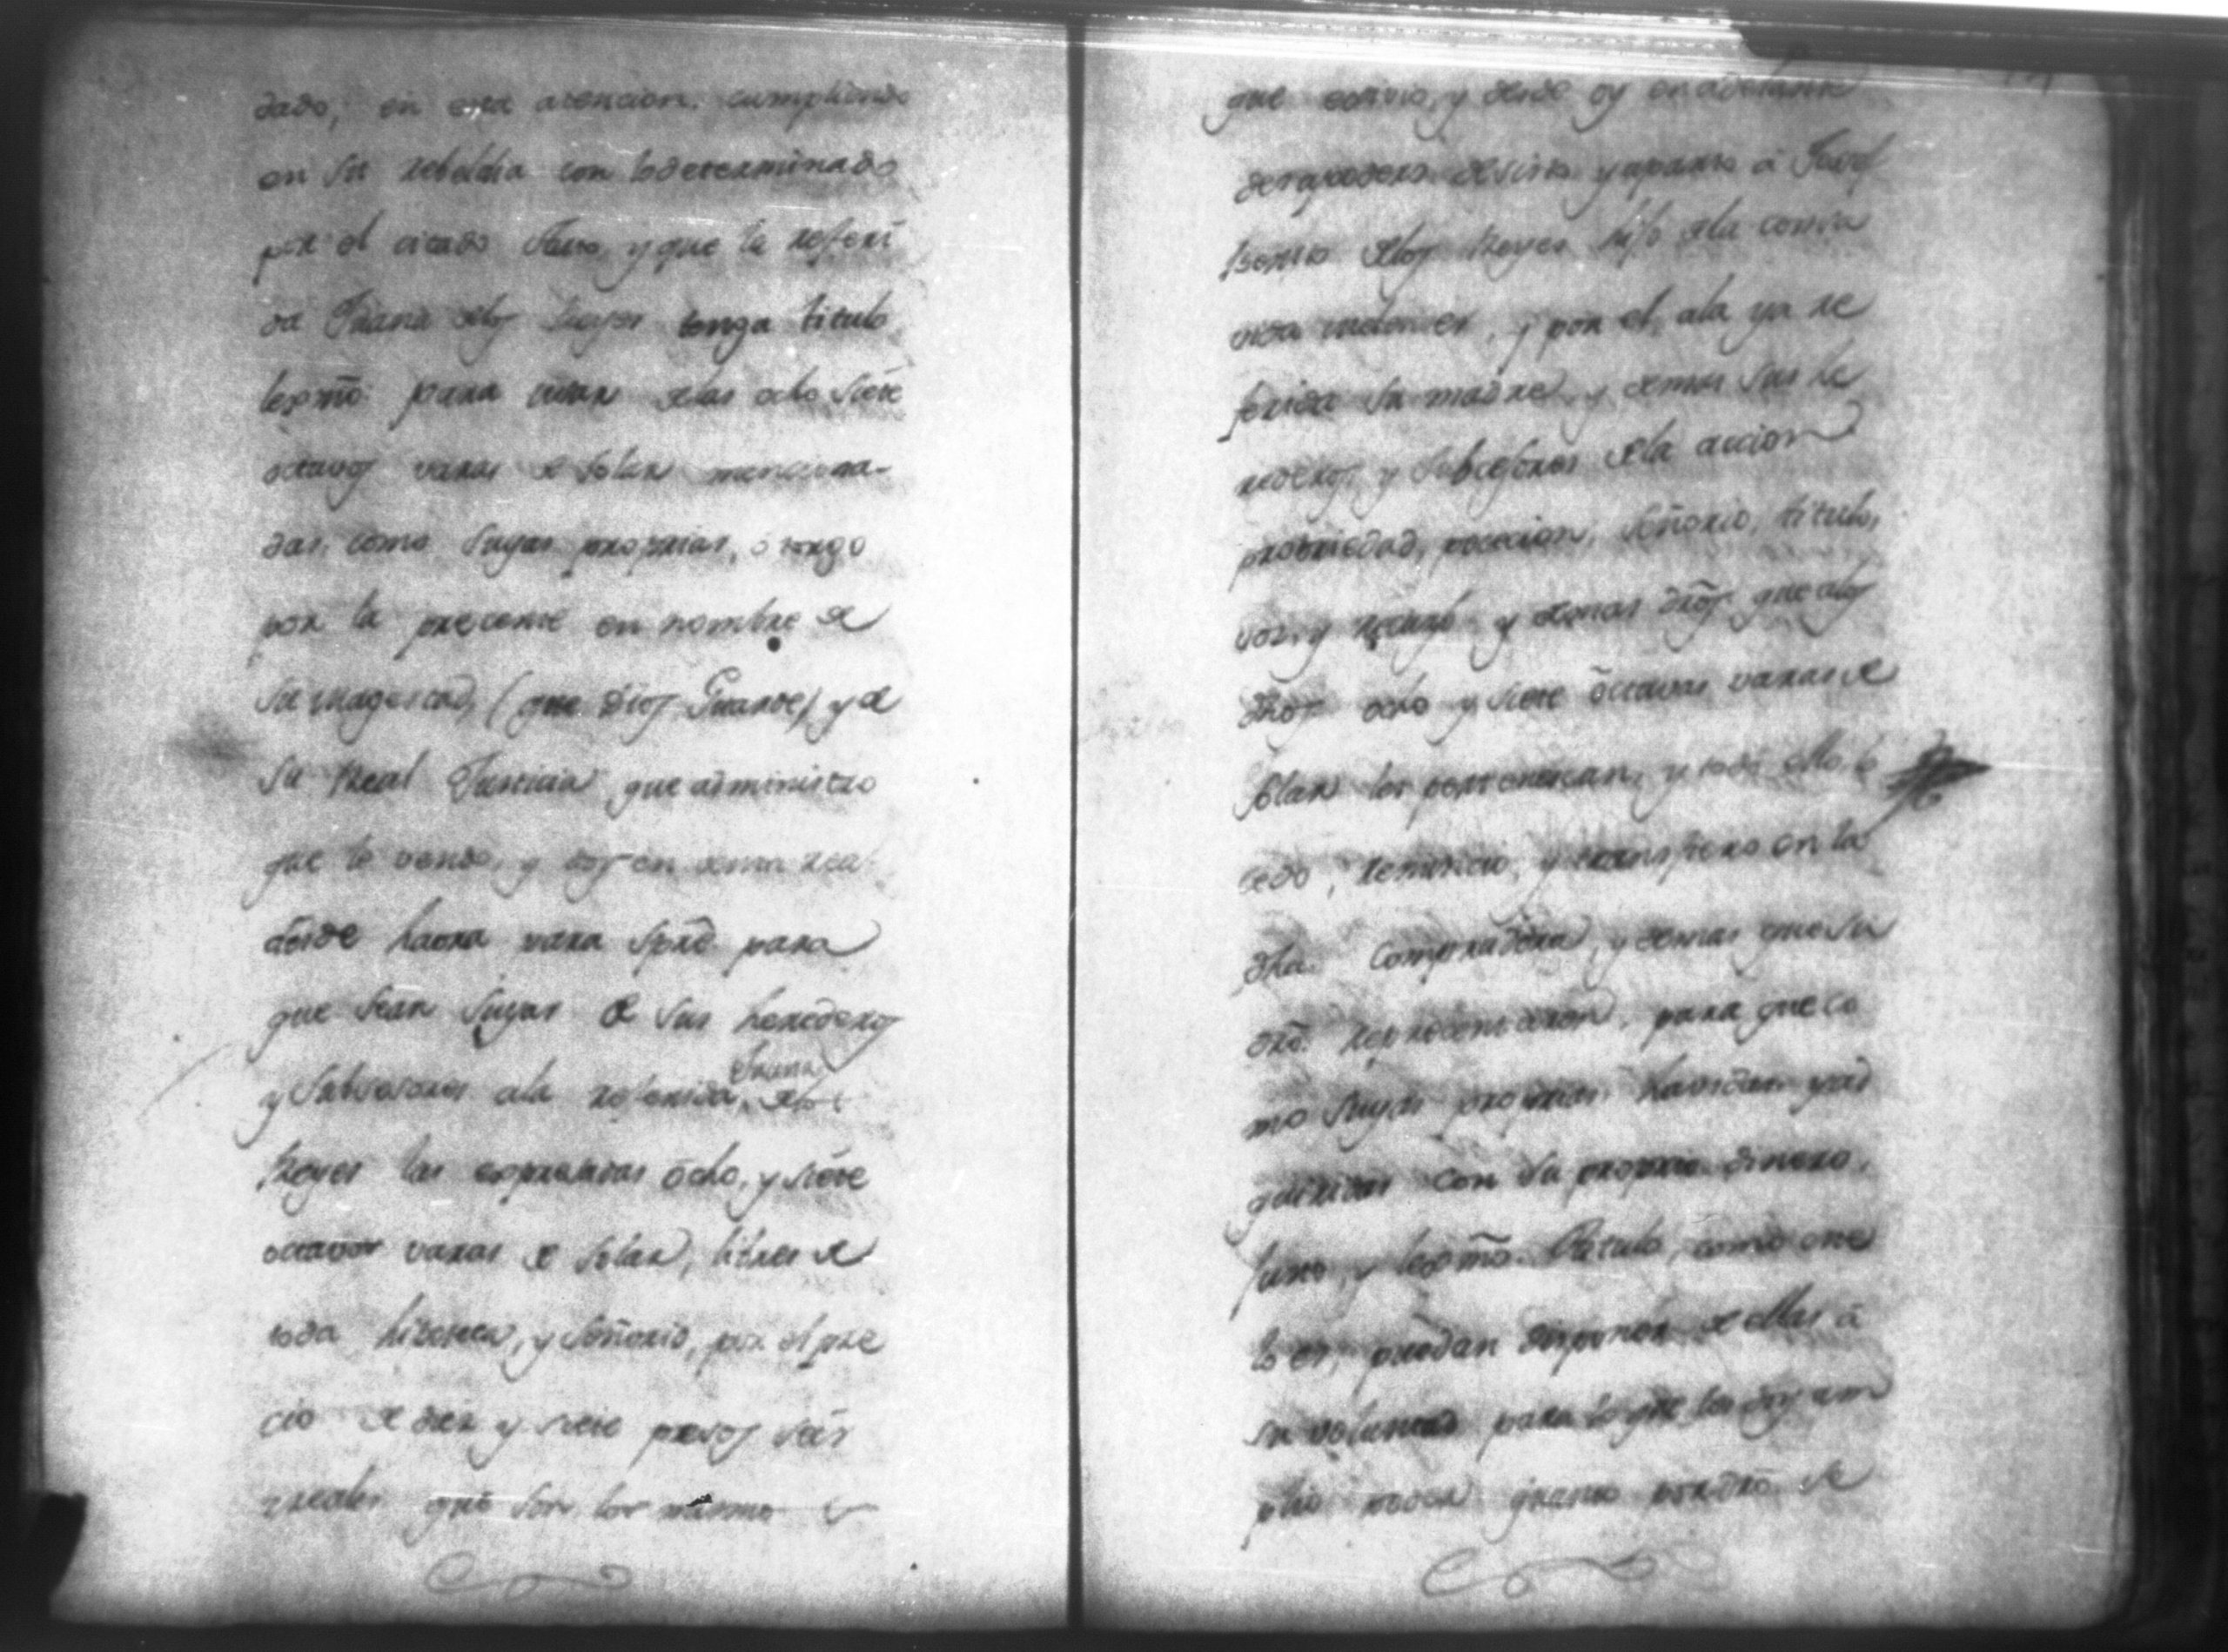 dado, en esta atencion, cumpliendo
en su rebeldia con lo determinado
por el citado Auto, y que la referi
da Juana de los Reyes tenga titulo
lexmo para usar de las ocho siete
octavos varas de solar menciona-
das, como suyas proprias, otorgo
por la precente en nombre de
su magestad, (que Dios Guarde) y de
su Real Justicia que administro
que le vendo, y doy en venta real
desde haora para spre para
que sean suyas de sus herederos
y Subsesores a la referida, Juana de los
Reyes las expresadas ocho, y siete
octavas varas de solar, libres de
toda hipoteca, y señorio, por el pre
cio de diez y siete pesos seis
rreales que son los mismo
que exivio, y desde oy en adelante
desapodero desisto y aparto á Josef
Benito de los Reyes hijo de la conte
nida, y por el, a la ya re
ferida su madre, y demas sus he
rederos y Subcesores de la accion
propriedad, pocecion, señorio, titulo,
voz, y recurso y demas dros que a las
dhas ocho y siete octavas varas de
solar les pertenescan, y todo ello lo
cedo, renuncio, y transfiero en la
dha. Compradora, y demas que su
dro. representaren, para que co
mo suyas proprias havidas y ad
quiridas con su proprio dinero,
justo, y lexmo. Titulo, como este
lo es, puedan disponer de ellas á
su voluntad para lo que les doy am
plio poder quanto por dro. se